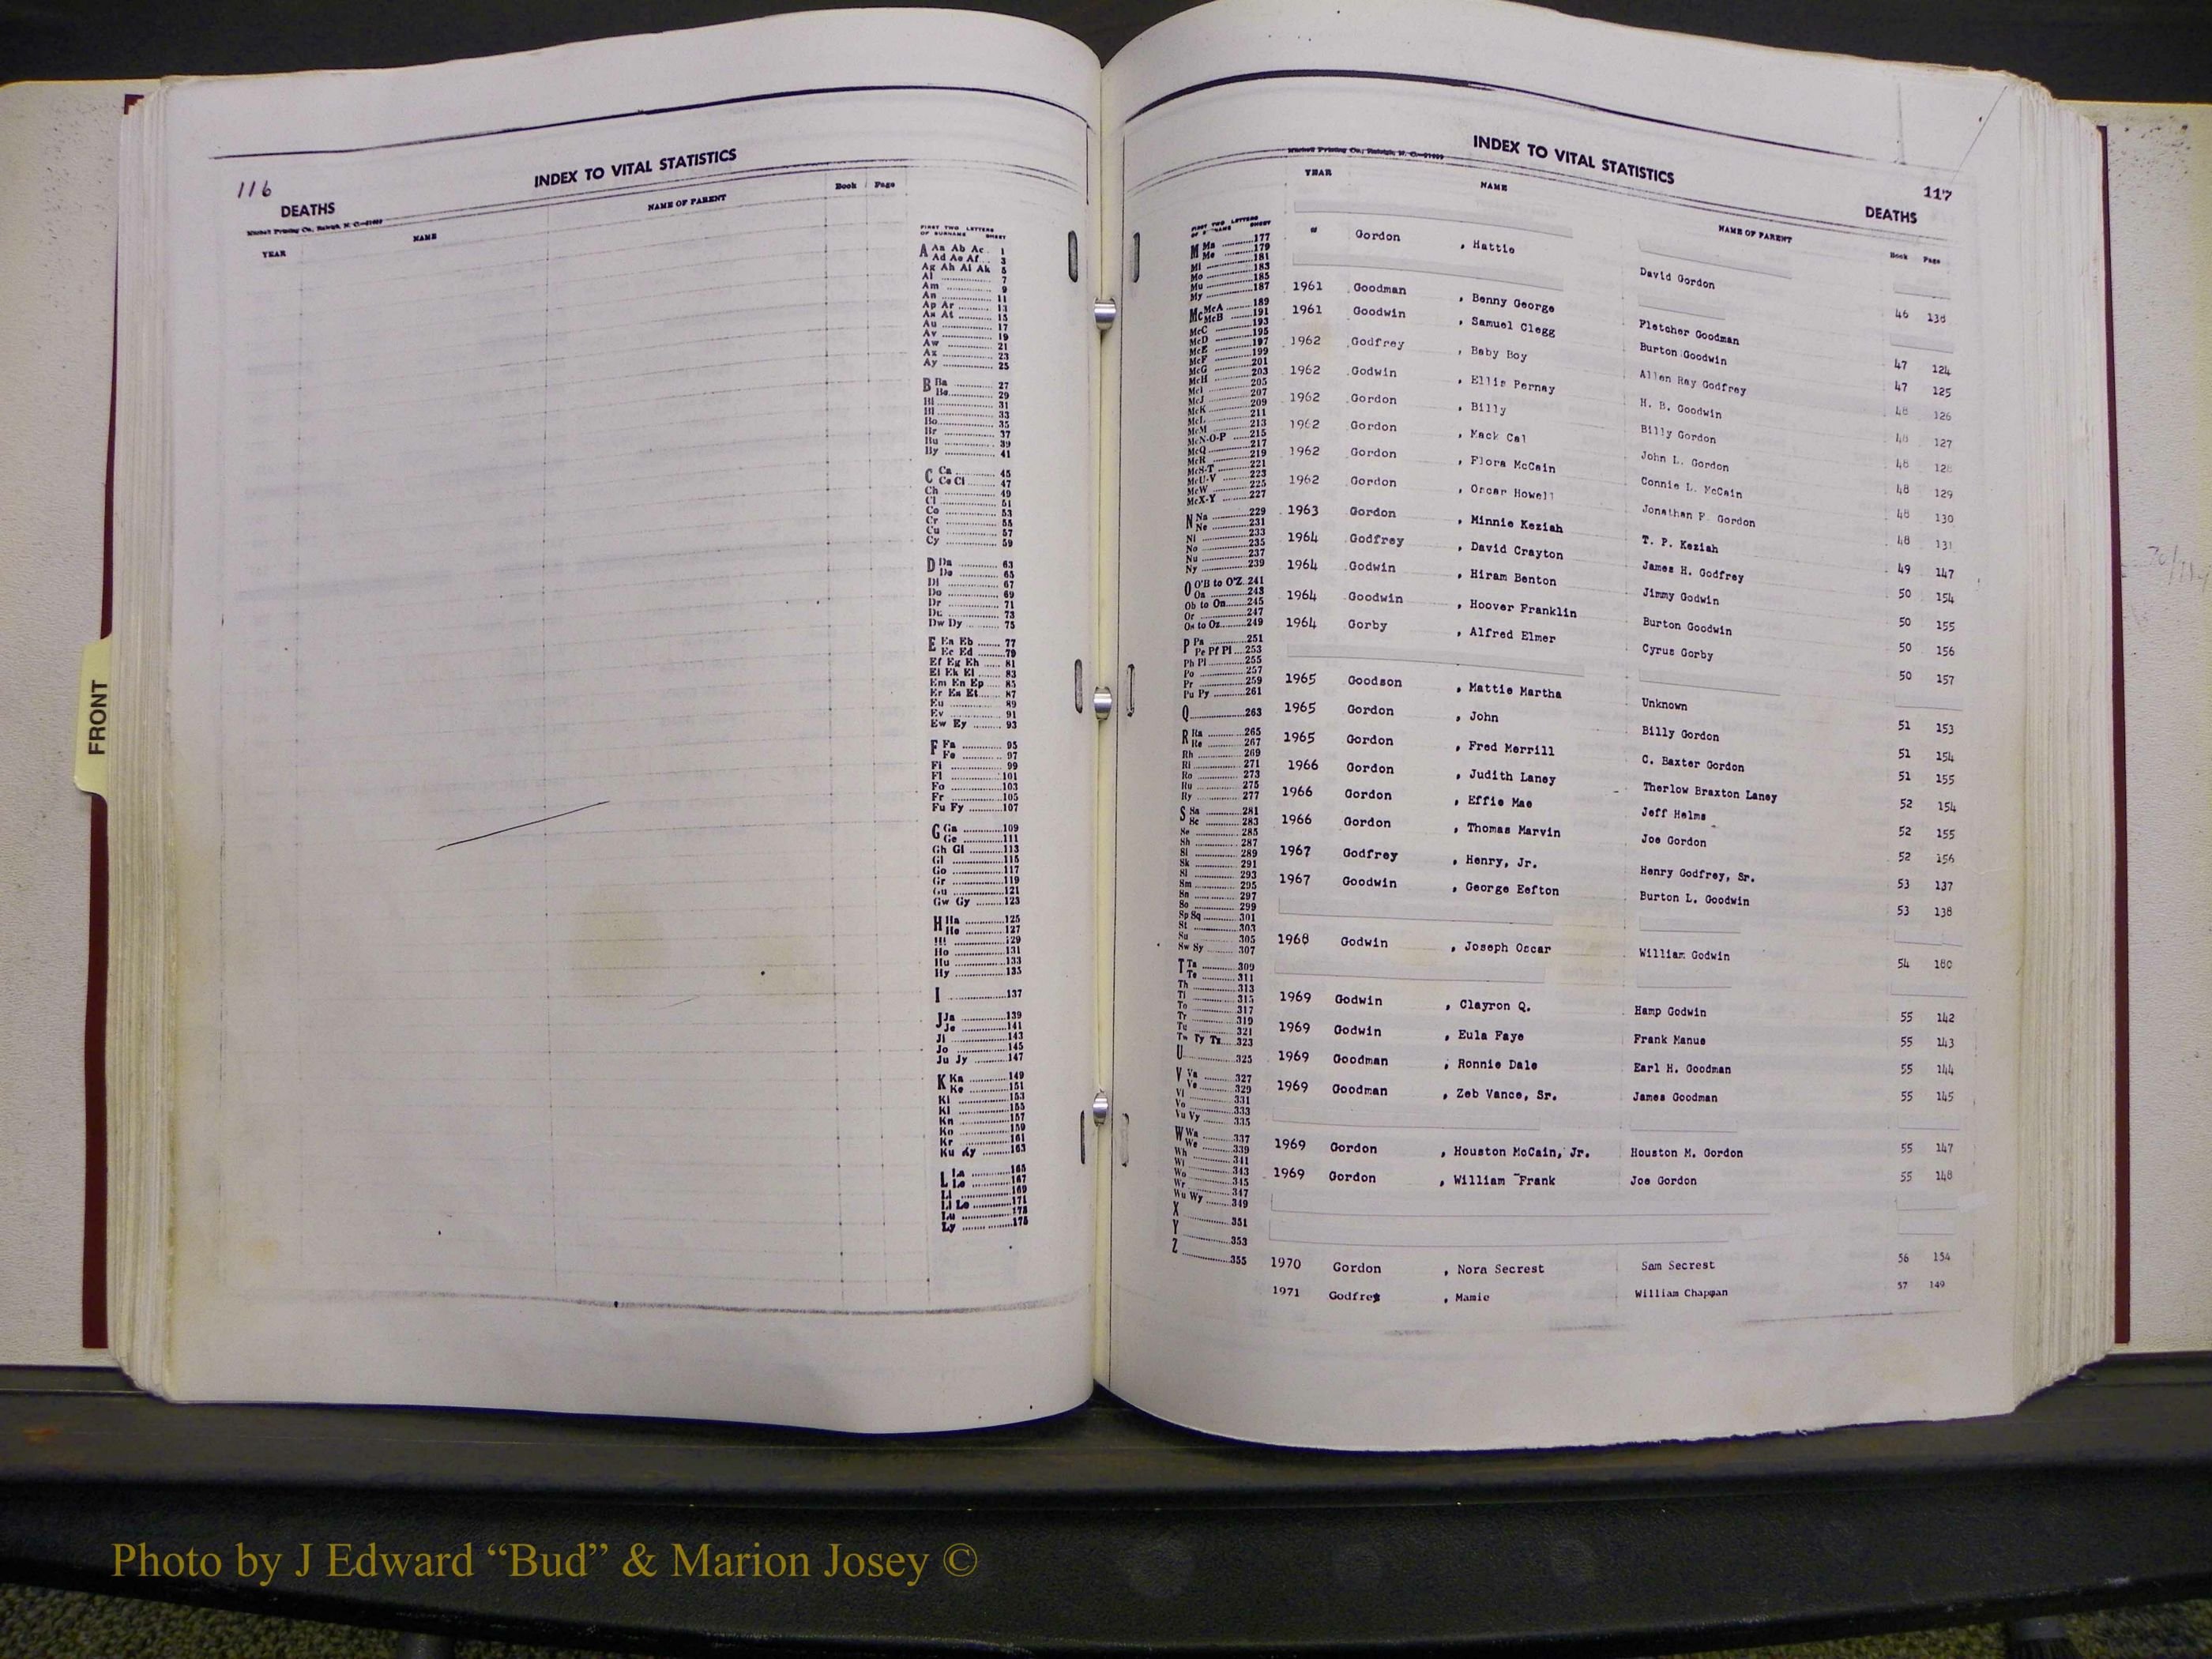 116
INDEX TO VITAL STATISTICS
DEATHS
Mitchell Printing Co., Raleigh, N. C.
YEAR NAME NAME OF PARENT Book Page
FIRST TWO LETTERS
OF SURNAME SHEET
A Aa Ab Ac 1
Ad Ae Af 3
Ag Ah Ai Ak 5
Al 7
Am 9
An 11
Ap Ar 13
As At 15
Au 17
Av 19
Aw 21
Ax 23
Ay 25
B Ba 27
Be 29
Bi 31
Bl 33
Bo 35
Br 37
Bu 39
By 41
C Ca 45
Ce Ci 47
Ch 49
Cl 51
Co 53
Cr 55
Cu 57
Cy 59
D Da 63
De 65
Di 67
Do 69
Dr 71
Du 73
Dw Dy 75
E Ea Eb 77
Ec Ed 79
Ef Eg Eh 81
Ei Ek El 83
Em En Ep 85
Er Es Et 87
Eu 89
Ev 91
Ew Ey 93
F Fa 95
Fe 97
Fi 99
Fl 101
Fo 103
Fr 105
Fu Fy 107
G Ga 109
Ge 111
Gh Gi 113
Gl 115
Go 117
Gr 119
Gu 121
Gw Gy 123
H Ha 125
He 127
Hi 129
Ho 131
Hu 133
Hy 135
I 137
J Ja 139
Je 141
Ji 143
Jo 145
Ju Jy 147
K Ka 149
Ke 151
Ki 153
Kl 155
Kn 157
Ko 159
Kr 161
Ku Ky 163
L La 165
Le 167
Li 169
Ll Lo 171
Lu 173
Ly 175
FRONT
INDEX TO VITAL STATISTICS
Mitchell Printing Co., Raleigh, N. C.
117
DEATHS
YEAR NAME NAME OF PARENT Book Page
FIRST TWO LETTERS
OF SURNAME SHEET
M Ma 177
Me 179
Mi 181
Mo 183
Mu 185
My 187
Mc McA 189
McB 191
McC 193
McD 195
McE 197
McF 199
McG 201
McH 203
McI 205
McJ 207
McK 209
McL 211
McM 213
McN-O-P 215
McQ 217
McR 219
McS-T 221
McU-V 223
McW 225
McX-Y 227
N Na 229
Ne 231
Ni 233
No 235
Nu 237
Ny 239
O O'B to O'Z 241
Oa 243
Ob to On 245
Or 247
Os to Oz 249
P Pa 251
Pe Pf Pi 253
Ph Pl 255
Po 257
Pr 259
Pu Py 261
Q 263
R Ra 265
Re 267
Rh 269
Ri 271
Ro 273
Ru 275
Ry 277
S Sa 281
Sc 283
Se 285
Sh 287
Si 289
Sk 291
Sl 293
Sm 295
Sn 297
So 299
Sp Sq 301
St 303
Su 305
Sw Sy 307
T Ta 309
Te 311
Th 313
Ti 315
To 317
Tr 319
Tu 321
Tw Ty Tz 323
U 325
V Va 327
Ve 329
Vi 331
Vo 333
Vu Vy 335
W Wa 337
We 339
Wh 341
Wi 343
Wo 345
Wr 347
Wu Wy 349
X 351
Y 353
Z 355
" Gordon , Hattie David Gordon 46 138
1961 Goodman , Benny George Fletcher Goodman 47 124
1961 Goodwin , Samuel Clegg Burton Goodwin 47 125
1962 Godfrey , Baby Boy Allen Ray Godfrey 48 126
1962 Godwin , Ellis Pernay H. B. Goodwin 48 127
1962 Gordon , Billy Billy Gordon 48 128
1962 Gordon , Mack Cal John L. Gordon 48 129
1962 Gordon , Flora McCain Connie L. McCain 48 130
1962 Gordon , Oscar Howell Jonathan P. Gordon 48 131
1963 Gordon , Minnie Keziah T. P. Keziah 49 147
1964 Godfrey , David Crayton James H. Godfrey 50 154
1964 Godwin , Hiram Benton Jimmy Godwin 50 155
1964 Goodwin , Hoover Franklin Burton Goodwin 50 156
1964 Gorby , Alfred Elmer Cyrus Gorby 50 157
1965 Goodson , Mattie Martha Unknown 51 153
1965 Gordon , John Billy Gordon 51 154
1965 Gordon , Fred Merrill C. Baxter Gordon 51 155
1966 Gordon , Judith Laney Therlow Braxton Laney 52 154
1966 Gordon , Effie Mae Jeff Helms 52 155
1966 Gordon , Thomas Marvin Joe Gordon 52 156
1967 Godfrey , Henry, Jr. Henry Godfrey, Sr. 53 137
1967 Goodwin , George Eefton Burton L. Goodwin 53 138
1968 Godwin , Joseph Oscar William Godwin 54 180
1969 Godwin , Clayron Q. Hamp Godwin 55 142
1969 Godwin , Eula Faye Frank Manus 55 143
1969 Goodman , Ronnie Dale Earl H. Goodman 55 144
1969 Goodman , Zeb Vance, Sr. James Goodman 55 145
1969 Gordon , Houston McCain, Jr. Houston M. Gordon 55 147
1969 Gordon , William Frank Joe Gordon 55 148
1970 Gordon , Nora Secrest Sam Secrest 56 154
1971 Godfrey , Mamie William Chapman 57 149
Photo by J Edward “Bud” & Marion Josey ©